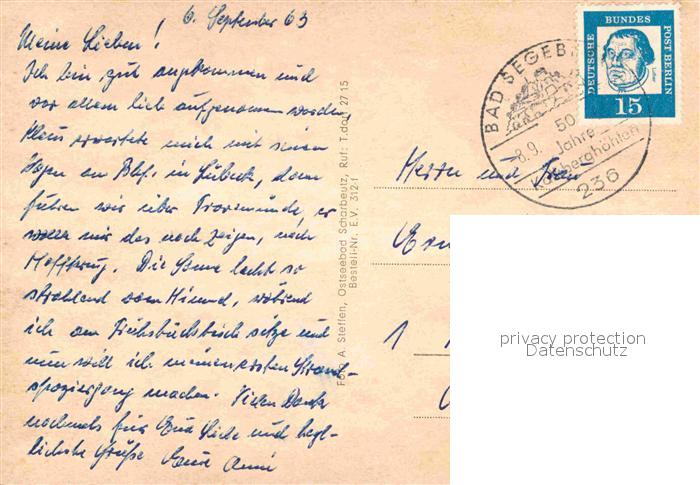 6. September 63
Meine Lieben!
Ich bin gut angekommen und
vor allem lieb aufgenommen worden,
Klaus erwartete mich mit seinem
Wagen am Bhf. in Lübeck, dann
fuhren wir über Travemünde, er
wollte mir das noch zeigen, nach
Haffkrug. Die Sonne lacht so
strahlend vom Himmel, während
ich am Frühstückstisch sitze und
nun will ich meinen ersten Strand-
spaziergang machen. Vielen Dank
nochmals für Eure Liebe und herz-
lichste Grüße Eure Anni
Foto A. Steffen, Ostseebad Scharbeutz, Ruf: T.dorf 27 15
Bestell-Nr. E.V. 312-f
BAD SEGEB
50
Jahre
Kalkberghöhlen
8.9.
236
DEUTSCHE BUNDES POST BERLIN
15
Herrn und Frau
1
privacy protection
Datenschutz